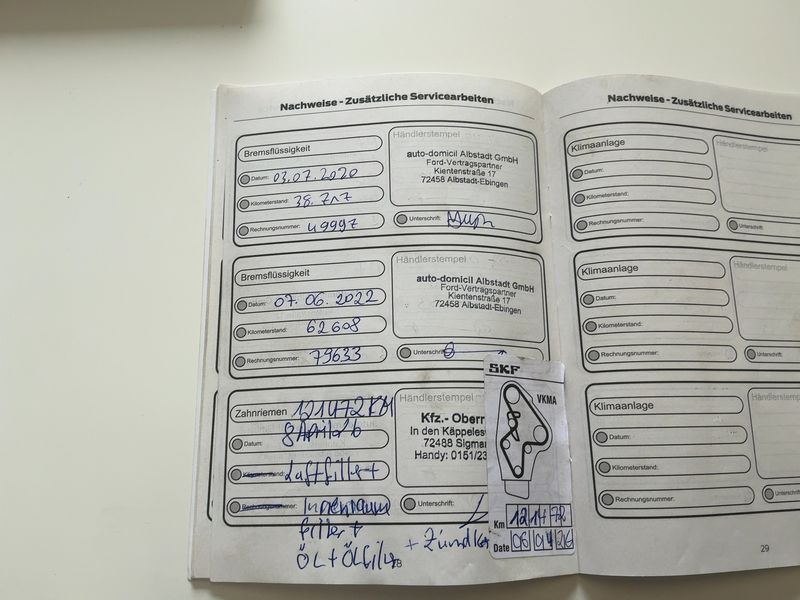 Nachweise - Zusätzliche Servicearbeiten
Bremsflüssigkeit
Datum: 03.07.2020
Kilometerstand: 38.717
Rechnungsnummer: 49997
Händlerstempel
auto-domicil Albstadt GmbH
Ford-Vertragspartner
Kientenstraße 17
72458 Albstadt-Ebingen
Unterschrift:
Bremsflüssigkeit
Datum: 07.06.2022
Kilometerstand: 62608
Rechnungsnummer: 79633
Händlerstempel
auto-domicil Albstadt GmbH
Ford-Vertragspartner
Kientenstraße 17
72458 Albstadt-Ebingen
Unterschrift:
Zahnriemen 121472KM
Datum:
Kilometerstand: Luftfilter +
Rechnungsnummer: Innenraum
filter +
Öl + Ölfilter + Zündke
Händlerstempel
Kfz.- Oberr
In den Käppelesw
72488 Sigmar
Handy: 0151/23
Unterschrift:
SKF
VKMA
Km 121472
Date 08 04 26
Nachweise - Zusätzliche Servicearbeiten
Klimaanlage
Datum:
Kilometerstand:
Rechnungsnummer:
Händlerstempel
Unterschrift:
Klimaanlage
Datum:
Kilometerstand:
Rechnungsnummer:
Händlerstempel
Unterschrift:
Klimaanlage
Datum:
Kilometerstand:
Rechnungsnummer:
Händlerstempel
Unterschrift:
29